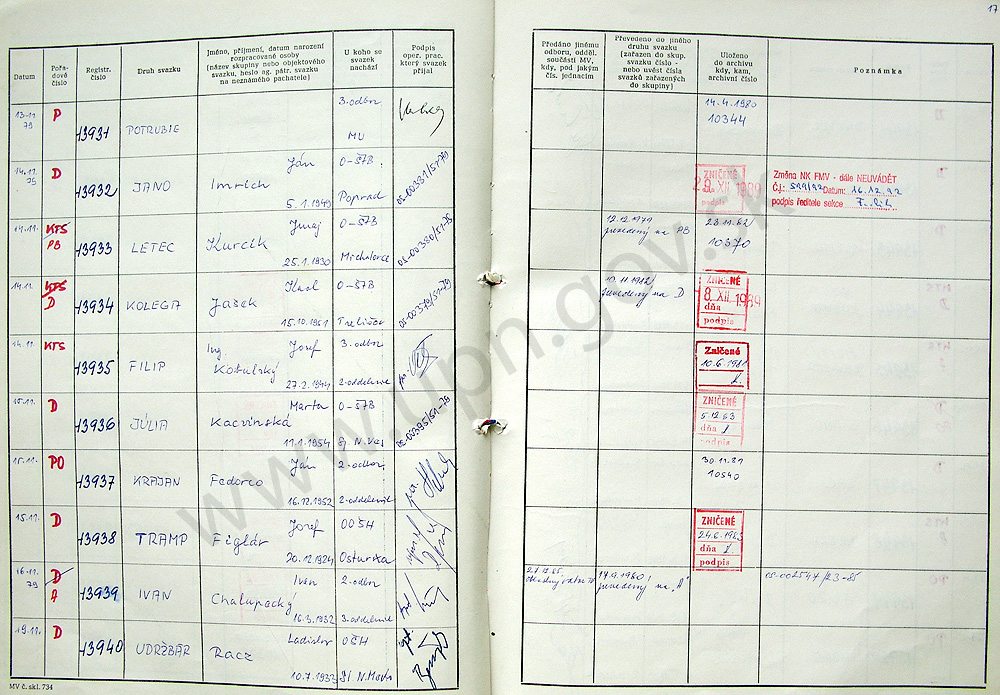 17
Datum
Pořadové číslo
Registr. číslo
Druh svazku
Jméno, příjmení, datum narození rozpracované osoby (název skupiny nebo objektového svazku, heslo ag. pátr. svazku na neznámého pachatele)
U koho se svazek nachází
Podpis oper. prac. který svazek přijal
Předáno jinému odboru, odděl. součásti MV, kdy, pod jakým čís. jednacím
Převedeno do jiného druhu svazku (zařazen do skup. svazku číslo - nebo uvést čísla svazků zařazených do skupiny)
Uloženo do archivu kdy, kam, archivní číslo
Poznámka
13.11. 79
P
13931
POTRUBIE
3. odbor
MV
14.4.1980
10344
14.11. 79
D
13932
JANO
Ján
Imrich
5.1.1949
O-ŠTB
Poprad
OS-00381/51-79
ZNIČENÉ
29 XII 1989
podpis
Změna NK FMV - dále NEUVÁDĚT
Č.j.: 599/92 Datum: 16.12.92
podpis ředitele sekce
14.11.
KTS
PB
13933
LETEC
Juraj
Kurcik
25.1.1930
O-ŠTB
Michalovce
OS-00380/51-79
12.12.1979
prevedený na PB
23.11.82
10370
14.11.
KTS
D
13934
KOLEGA
Jašek
15.10.1951
O-ŠTB
Trebišov
OS-00379/51-79
10.11.1982
prevedený na D
ZNIČENÉ
8 XII 1989
dňa
podpis
14.11.
KTS
13935
FILIP
Ing. Jozef
Kobulský
27.2.1944
3. odbor
2. oddelenie
Zničené
10.6.1981
15.11.
D
13936
JÚLIA
Marta
Kacvinská
11.1.1954
O-ŠTB
Sp. N. Ves
OS-00395/51-79
ZNIČENÉ
5.12.83
dňa
podpis
15.11.
PO
13937
KRAJAN
Ján
Fedorco
16.12.1952
2. odbor
2. oddelenie
30.11.81
10540
15.11.
D
13938
TRAMP
Jozef
Figlár
20.12.1924
OOŠH
Osturňa
ZNIČENÉ
24.6.1983
dňa
podpis
16.11. 79
D
A
13939
IVAN
Ivan
Chalupecký
16.3.1932
2. odbor
3. oddelenie
17.9.1980
prevedený na "A"
OS-002547/23-85
19.11.
D
13940
UDRŽBÁR
Ladislav
Racz
10.7.1933
OŠH
www.upn.gov.sk
MV č. skl. 734